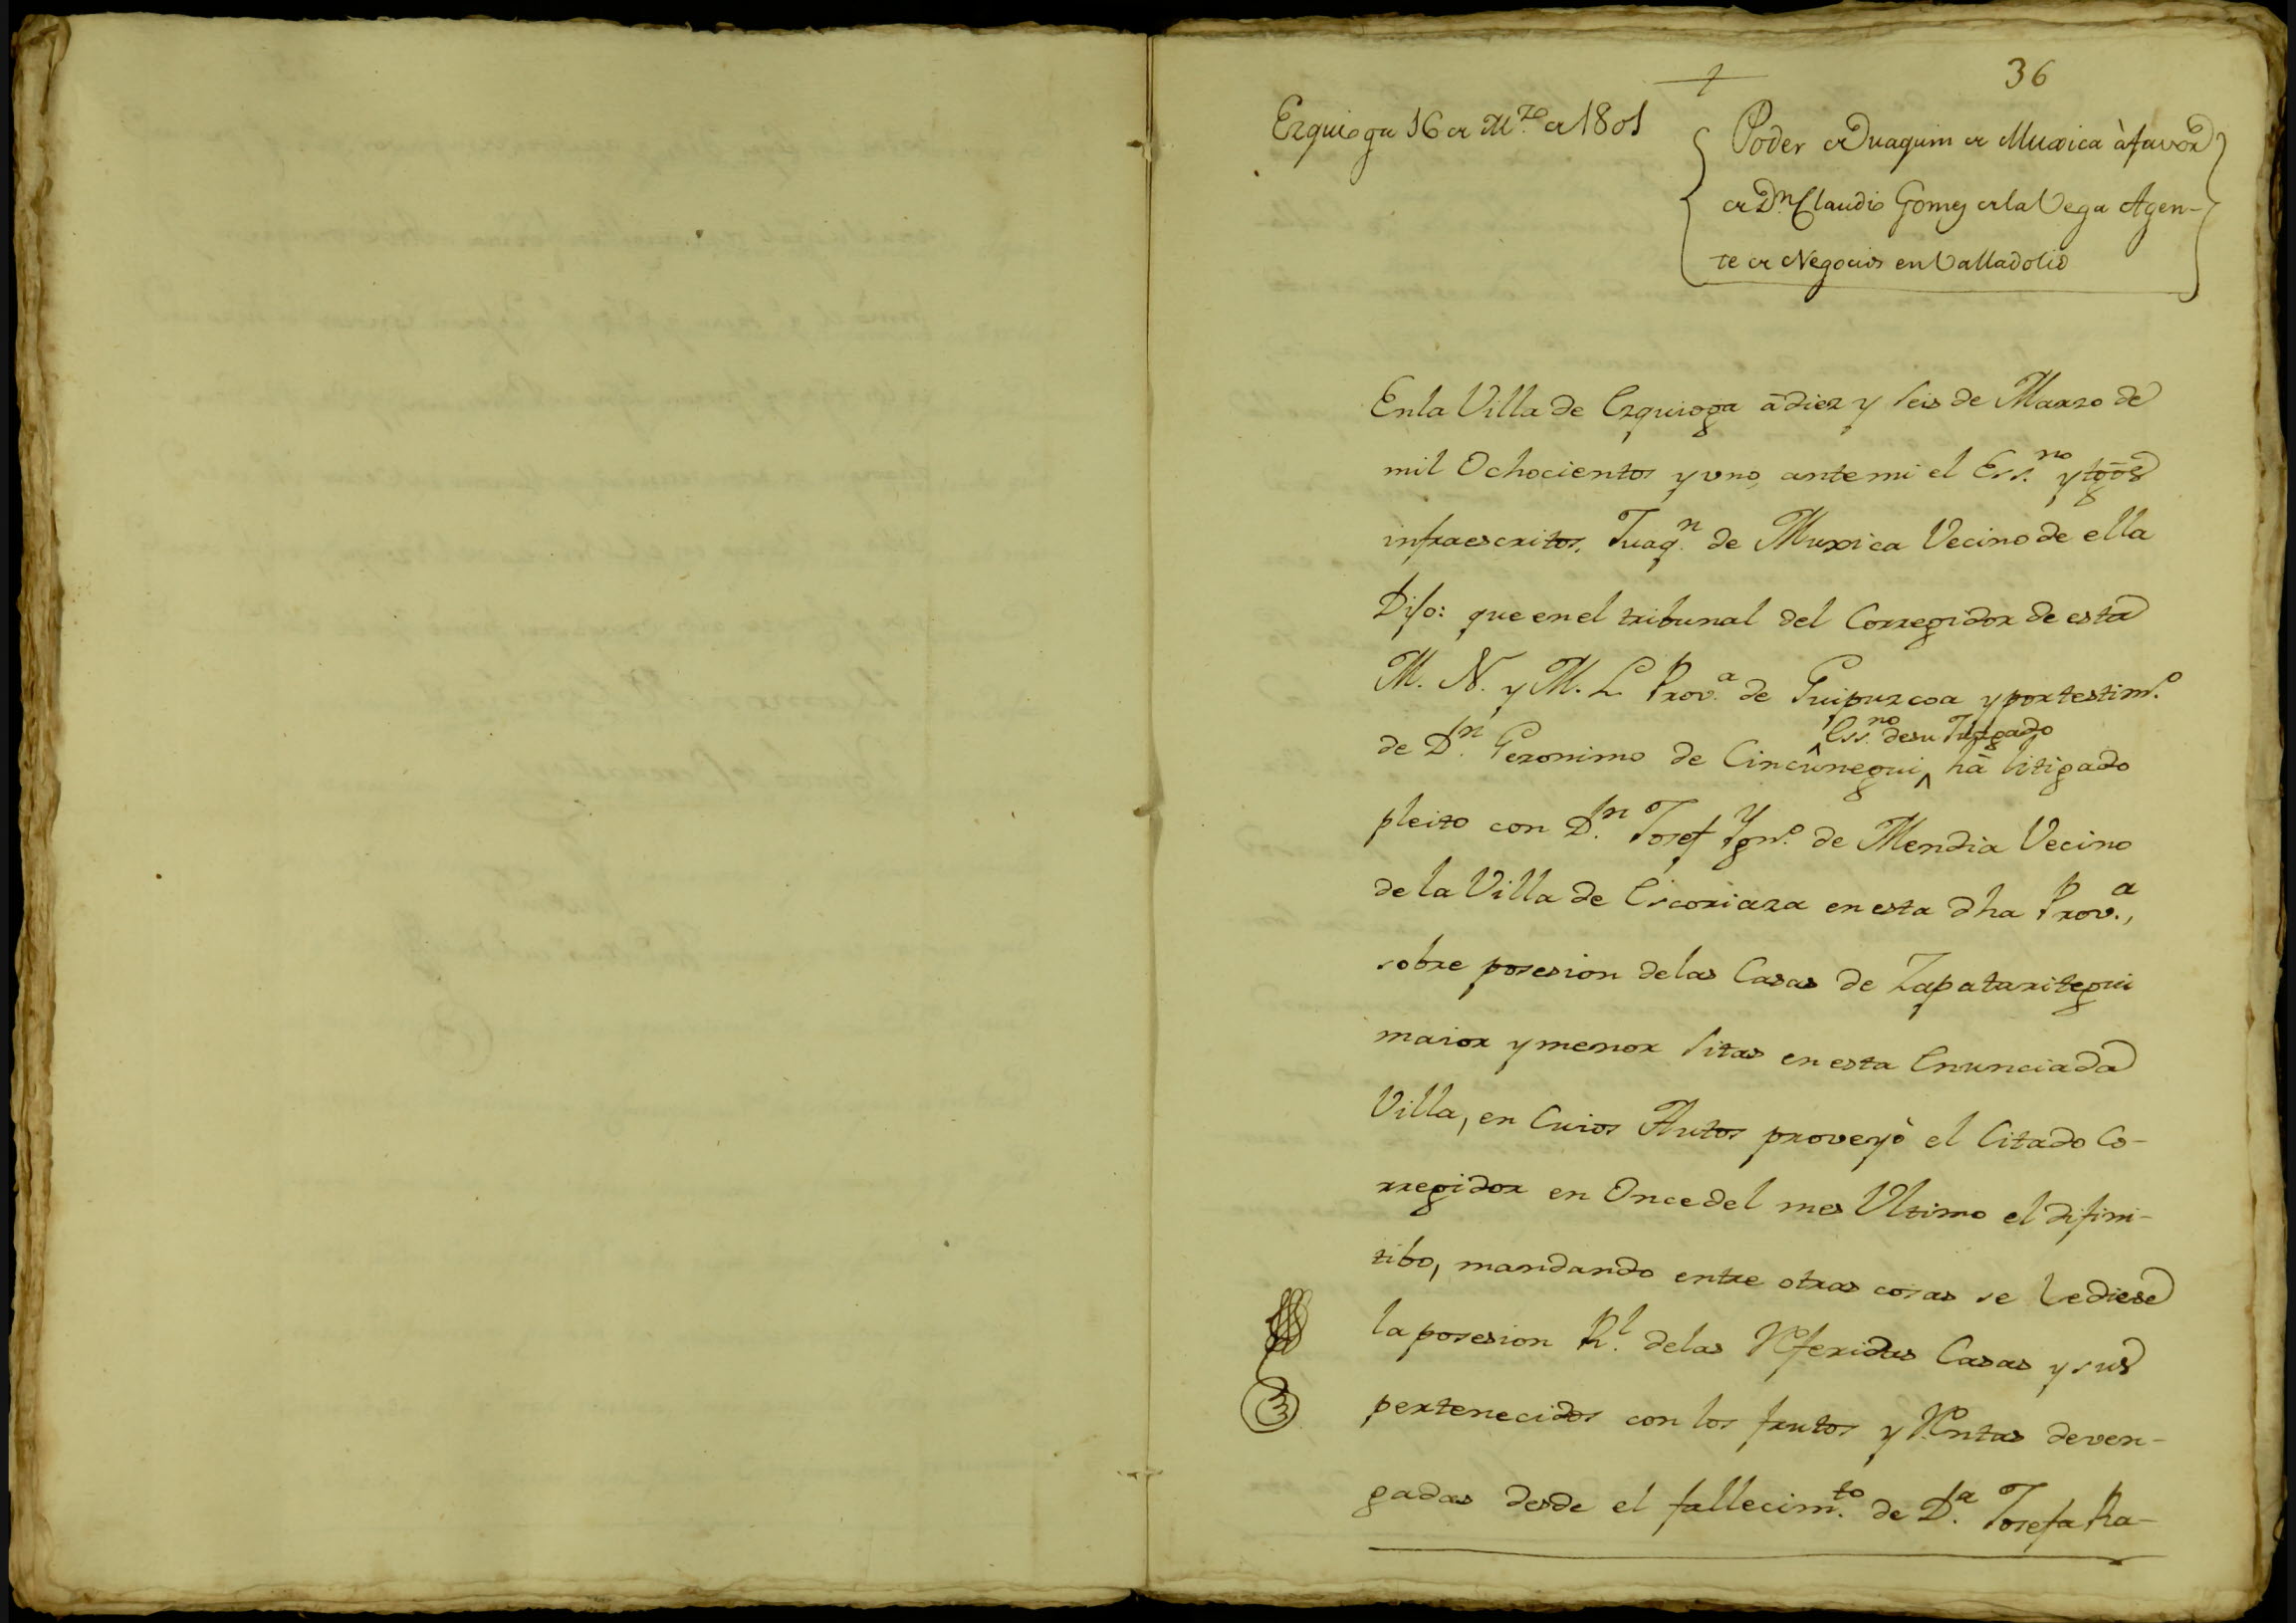 36
Ezquioga 16 de M.zo de 1801
Poder de Juaquin de Muxica à favor
de D.n Claudio Gomez de la Vega Agen-
te de Negocios en Valladolid
En la Villa de Ezquioga à diez y seis de Marzo de
mil Ochocientos y uno, ante mi el Ess.no y tgos
infraescritos, Juaq.n de Muxica Vecino de ella
Dijo: que en el tribunal del Corregidor de esta
M. N. y M. L. Prov.a de Guipuzcoa y por testim.o
de D.n Geronimo de Cincunegui, Ess.no de su Juzgado hà litigado
pleito con D.n Josef Ygn.o de Mendia Vecino
de la Villa de Escoriaza en esta dha Prov.a,
sobre posesion de las Casas de Zapataritegui
maior y menor sitas en esta Enunciada
Villa, en Cuios Autos proveyò el Citado Co-
rregidor en Once del mes Ultimo el difini-
tibo, mandando entre otras cosas se le diese
la posesion R.l de las Referidas Casas y sus
pertenecidos con los frutos y Rentas deven-
gadas desde el fallecim.to de D.a Josefa Ra-